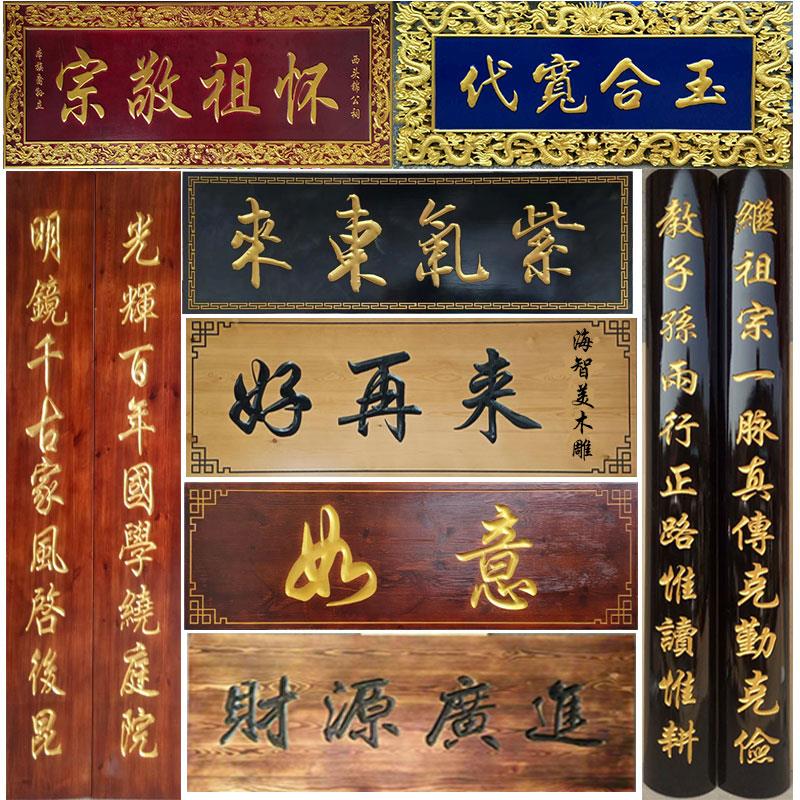 西头锦公祠
怀祖敬宗
族裔孙立
玉合寬代
光輝百年國學繞庭院
明鏡千古家風啓後昆
紫氣東來
好再来
海智美木雕
如意
財源廣進
繼祖宗一脉真傳克勤克儉
教子孫兩行正路惟讀惟耕